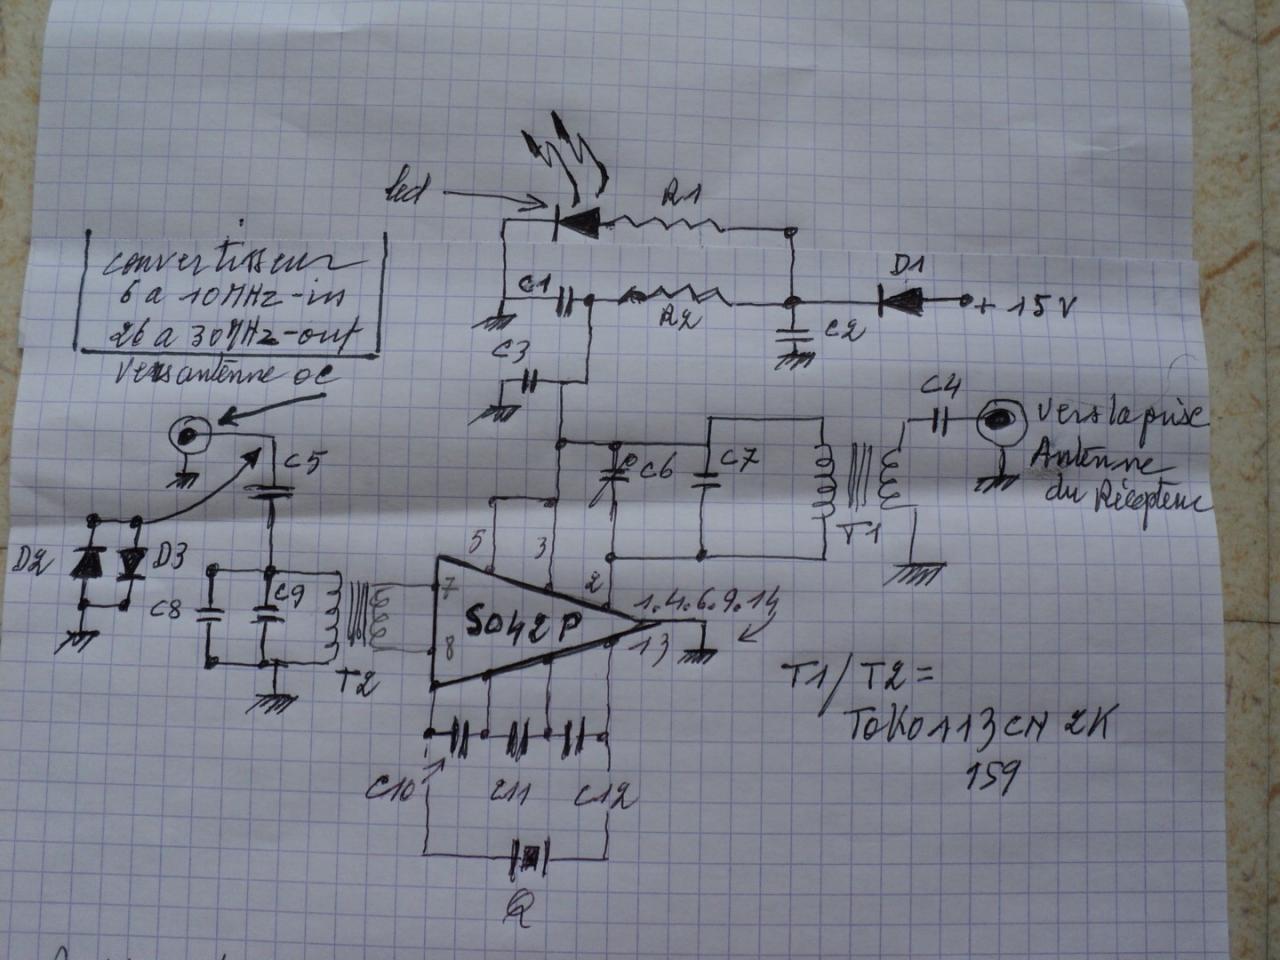 led
R1
convertisseur
6 a 10MHz-in
26 a 30MHz-out
Vers antenne OC
C1
R2
D1
+ 15V
C2
C3
C4
Vers la prise
Antenne
du Récepteur
C5
C6
C7
T1
D2
D3
C8
C9
T2
5
3
2
7
SO42P
8
1.4.6.9.14
13
T1/T2=
TOKO A13CN 2K
159
C10
C11
C12
Q